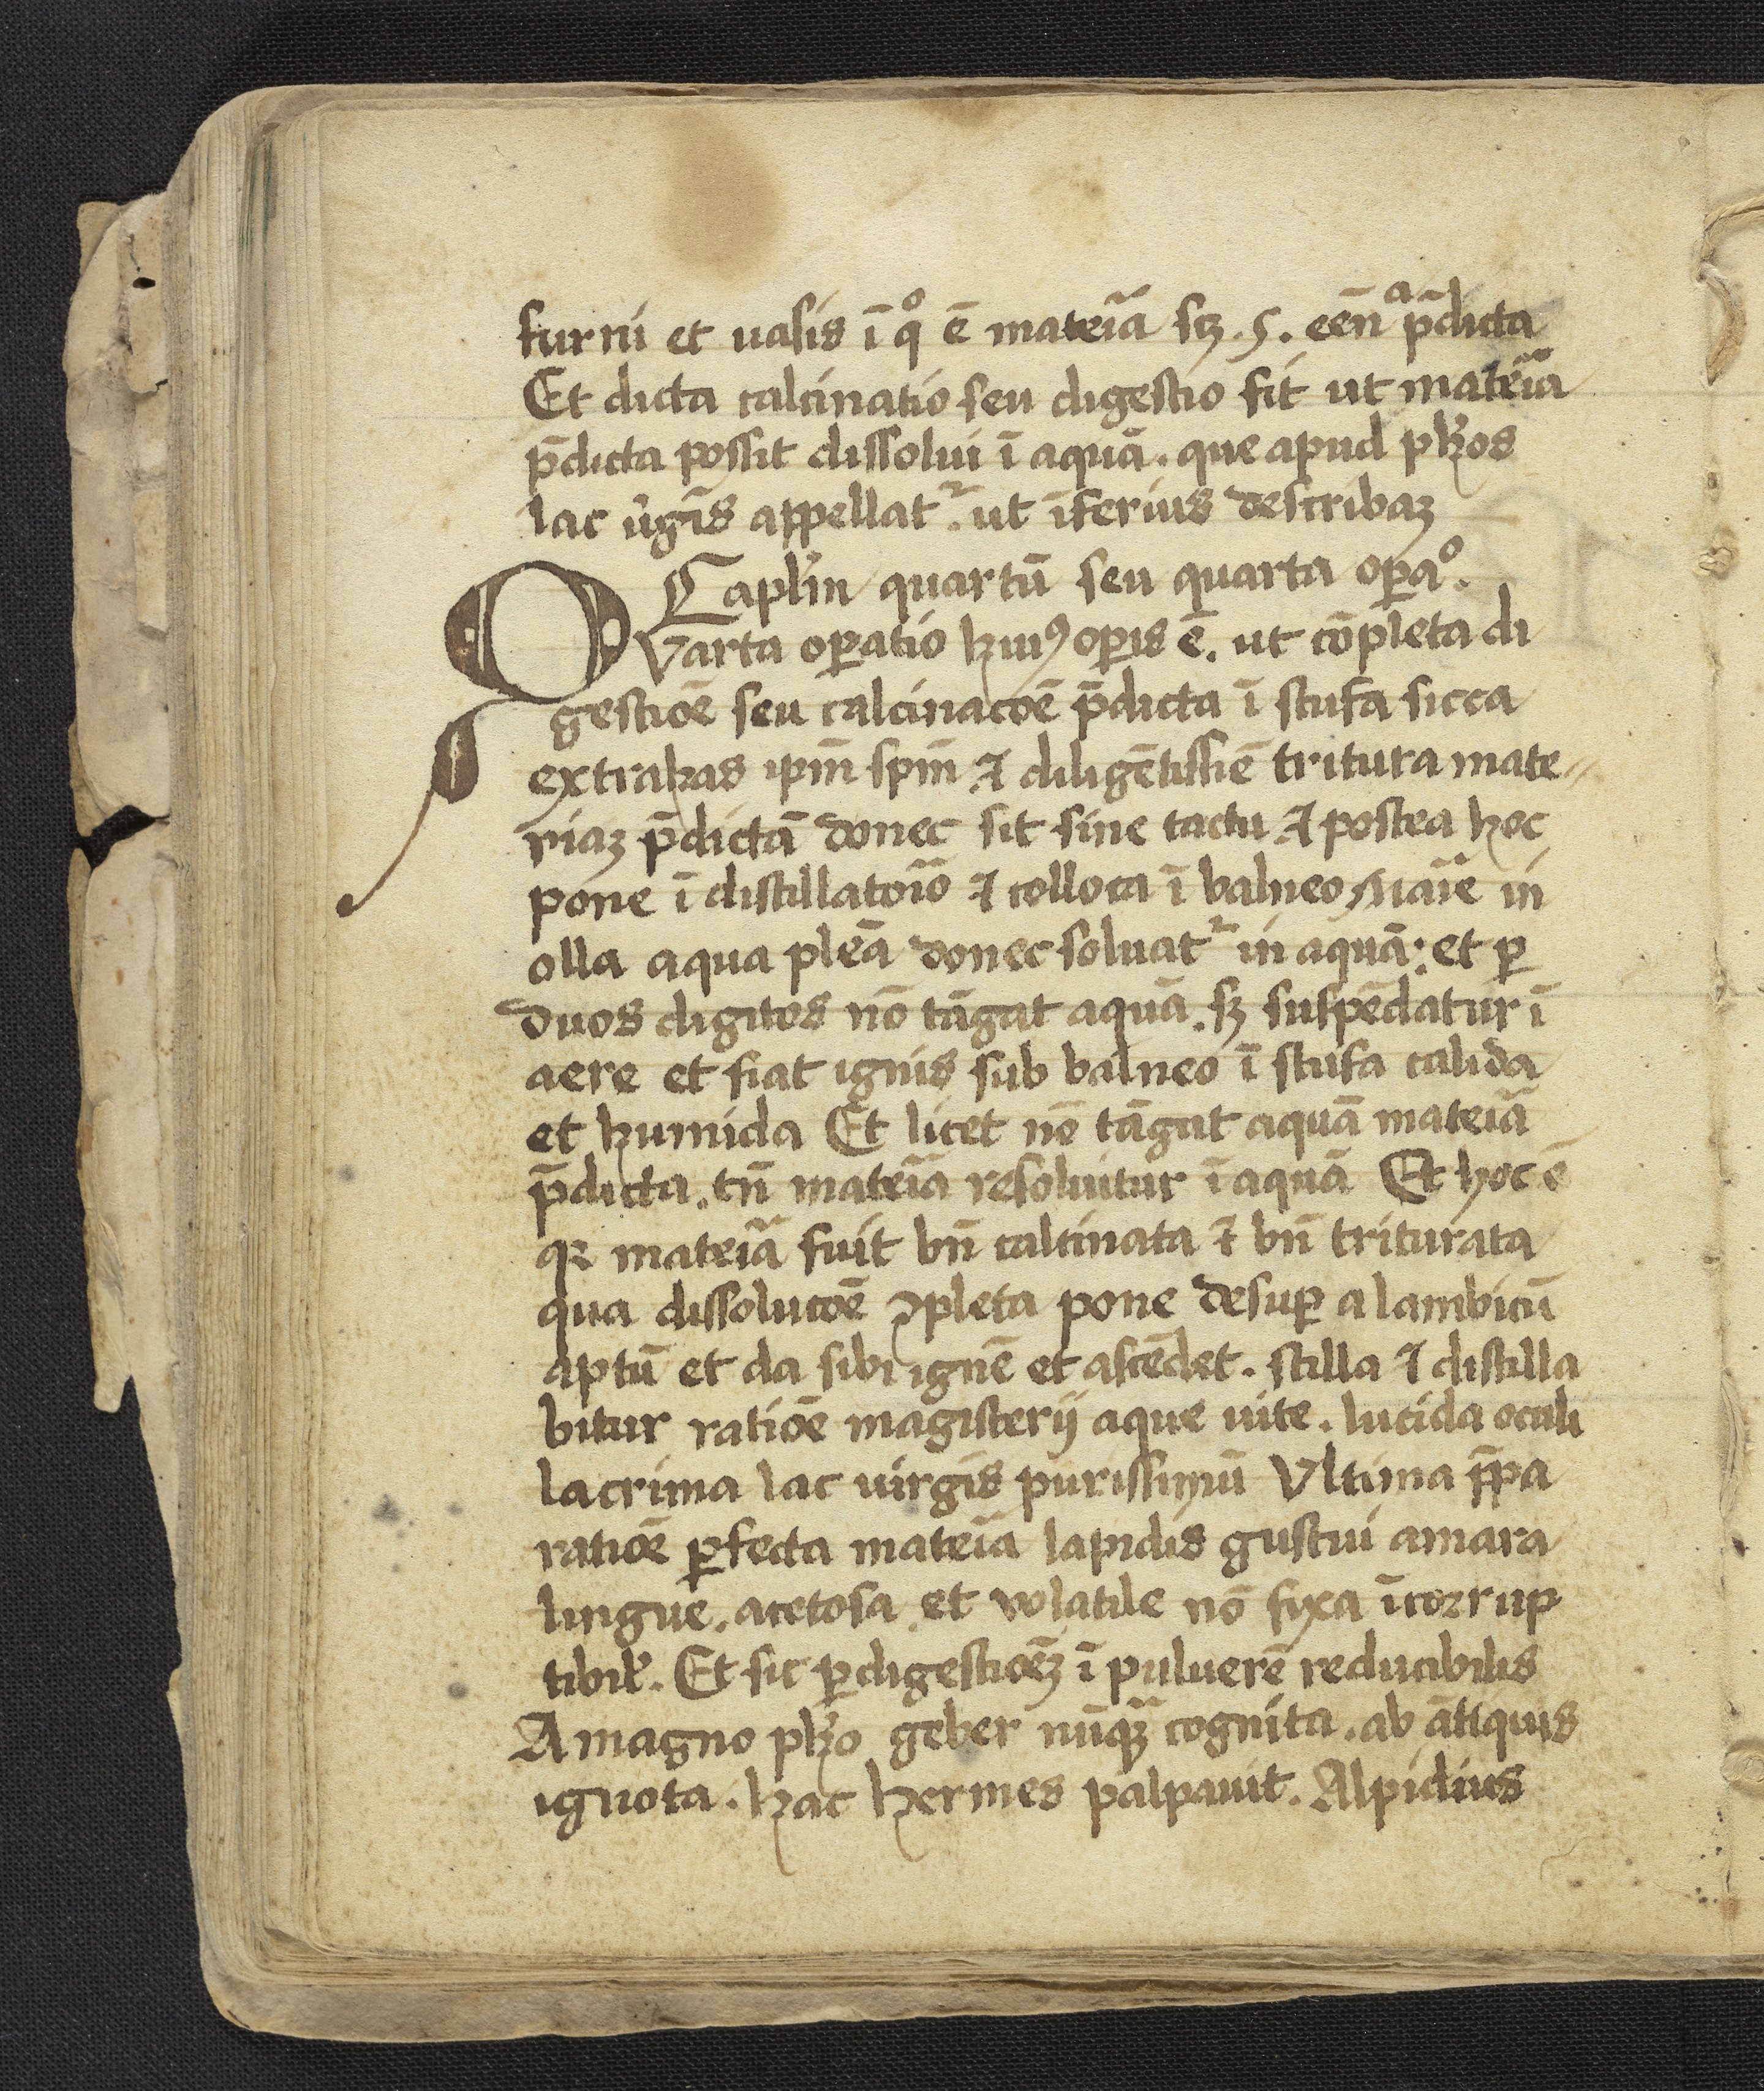 furni et uasis ī qº ē mateīa sꝫ .5. eēnª p̄dicta
Et dicta calcinatio seu digestio fit ut mateīa
p̄dicta possit dissolui ī aquā. que apud pħos
lac u̓gīs appellatᷣ. ut īferius describaꝫ
Capl̓m quartū seu quarta oꝑaº.
QVarta oꝑatio huiꝰ oꝑis ē. ut cōpleta di
gestiōe seu calcinacōe p̄dicta ī stufa sicca
extrahas ipm̄ spm̄ ⁊ diligētissīe tritura mate
riaꝫ p̄dictā donec sit sine tactu ⁊ postea hoc
pone ī distillatoīo ⁊ colloca ī balneo Maīe in
olla aqua pleā donec soluatᷣ in aquā: et ꝑ
duos digitos nō tāgat aquā. sꝫ suspēdatur ī
aere et fiat ignis sub balneo ī stufa calida
et humida Et licet nō tāgat aquā mateīa
p̄dicta. tn̄ mateīa resoluitur ī aquā Et hoc ē
qꝛ mateīa fuit bn̄ calcinata ⁊ bn̄ triturata
qua dissolucōe ꝯpleta pone desuꝑ alambicū
aptū et da sibi ignē et ascēdet. stilla ⁊ distilla
bitur ratiōe magisterij aque uite. lucida oculi
lacrima lac uirgīs purissimū Vltima p̄pa
ratiōe ꝑfecta mateīa lapidis gustui amara
lingue. acetosa. et volatile nō fyxa īcorrup
tibił. Et sic ꝑ digestiōeꝫ ī puluerē reducibilis
A magno pħo geber nūqꝫ cognita. ab ātiquis
ignota. hac hermes palpauit. Alpidius